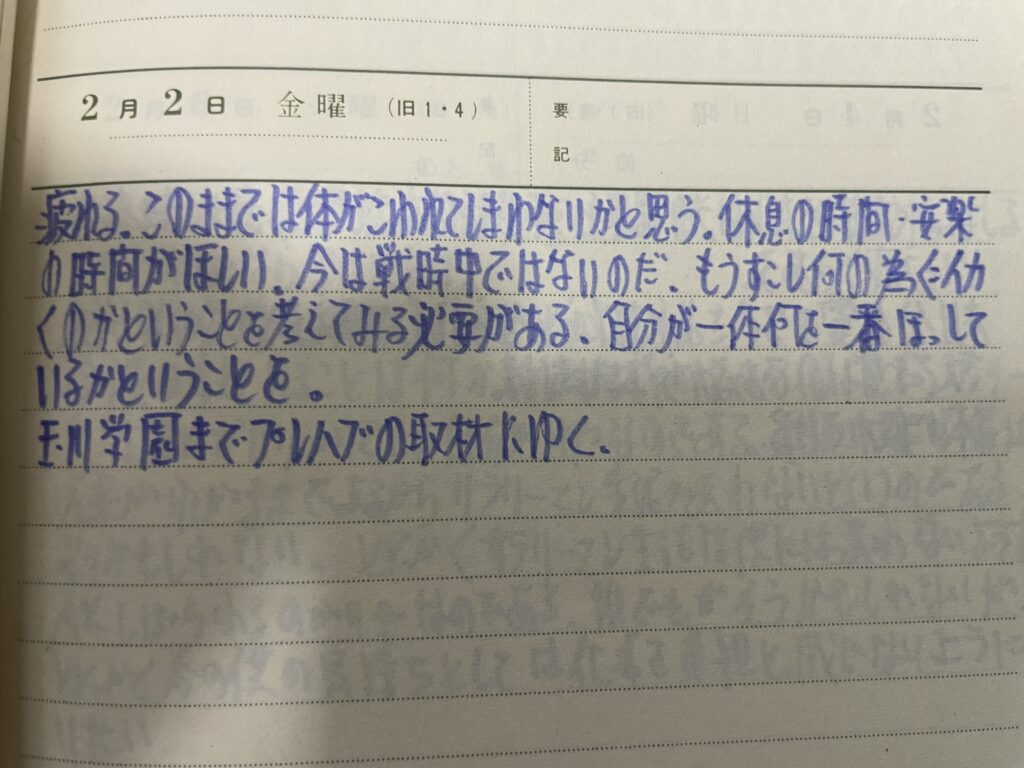 2月2日 金曜 (旧1・4) 要記
疲れる。このままでは体がこわれてしまわないかと思う。休息の時間・安楽
の時間がほしい。今は戦時中ではないのだ、もうすこし何の為に仂
くのかということを考えてみる必要がある、自分が一体何を一番ほっして
いるかということを。
玉川学園までプレハブの取材にゆく。